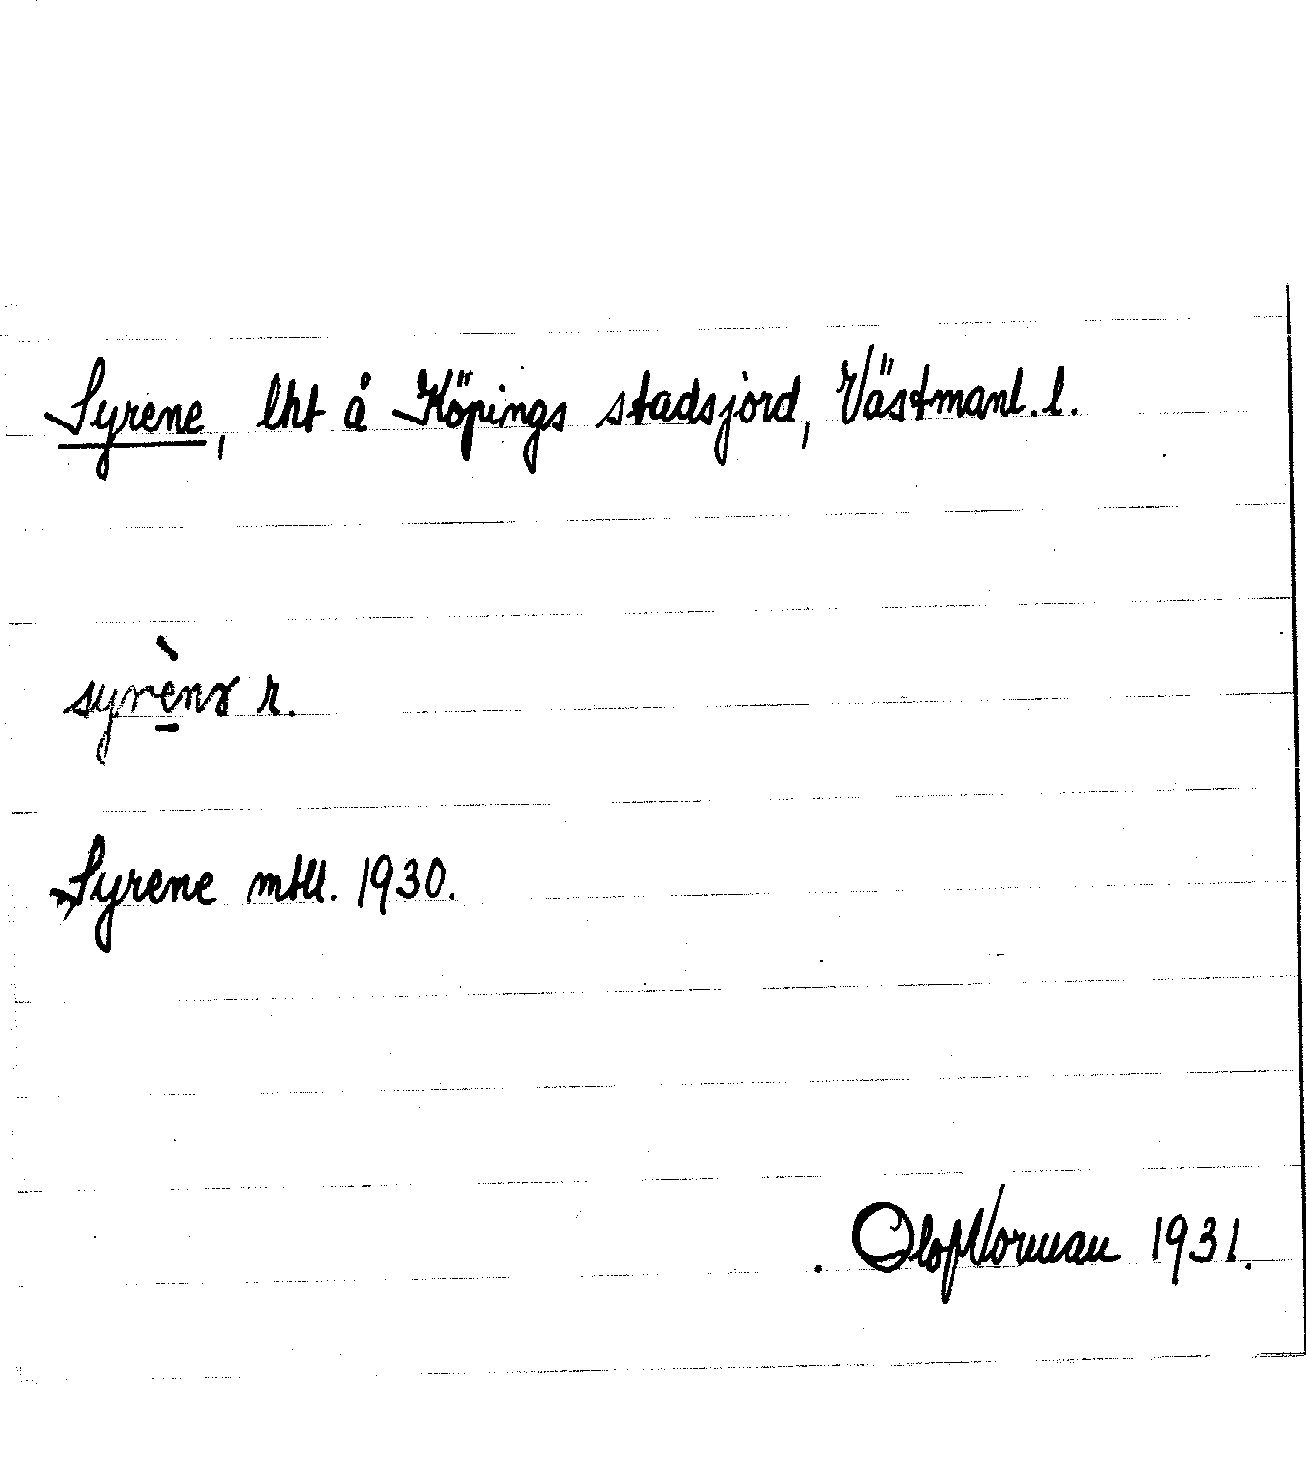 Syrene, lht å Köpings stadsjord, Västmanl. l.
syrènə r.
Syrene mtll. 1930.
Olof Norman 1931.